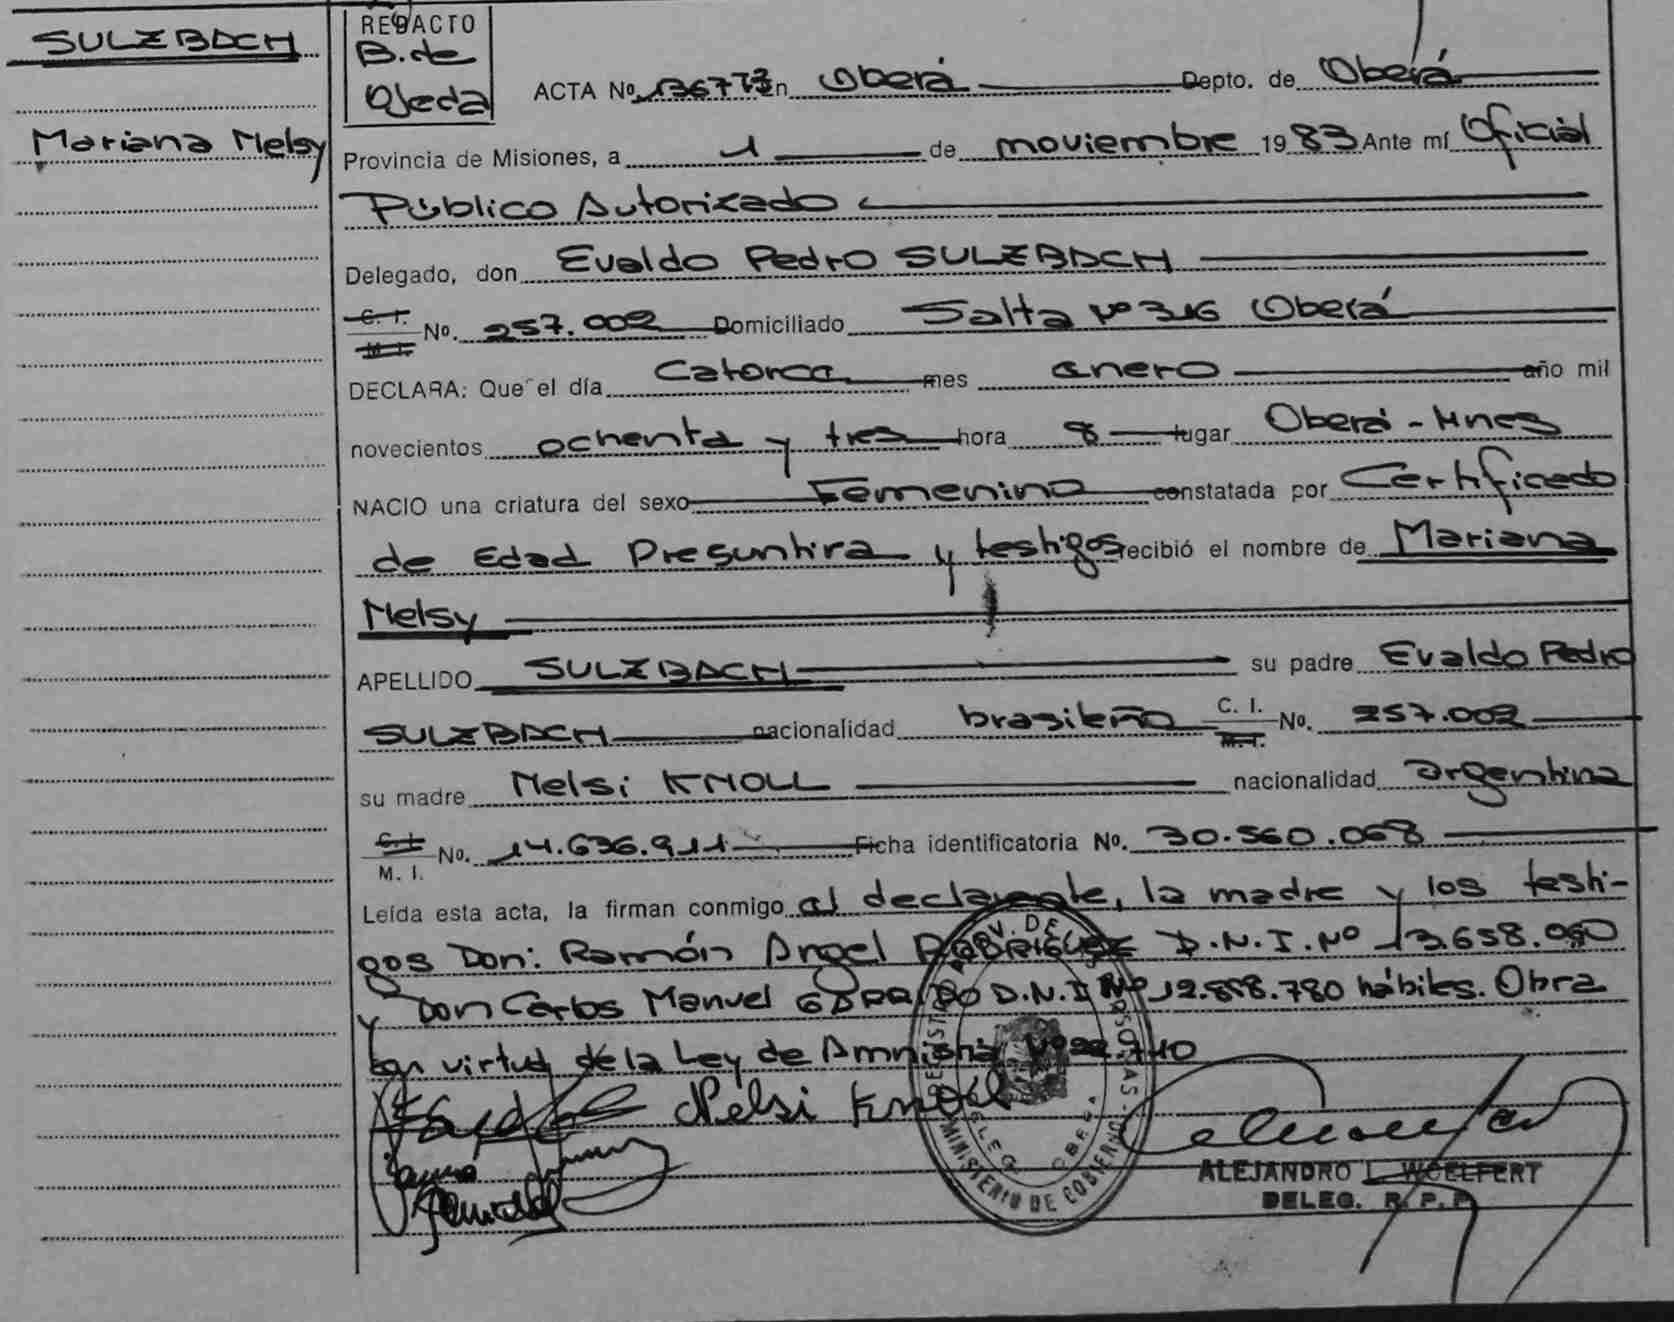 SULZBACH
Mariana Nelsy
REDACTO
B. de
Ojeda
ACTA No. En Oberá Depto. de Oberá
Provincia de Misiones, a 1 de noviembre 1983 Ante mí Oficial
Público Autorizado
Delegado, don Evaldo Pedro SULZBACH
C. I. M. I. No. 257.002 Domiciliado Salta Nº 316 Oberá
DECLARA: Que el día Catorce mes enero año mil
novecientos ochenta y tres hora 8 lugar Oberá - Mnes
NACIO una criatura del sexo Femenino constatada por Certificado
de Edad Presuntiva y testigos recibió el nombre de Mariana
Nelsy
APELLIDO SULZBACH su padre Evaldo Pedro
SULZBACH nacionalidad brasileño C. I. M. I. No. 257.002
su madre Nelsi KNOLL nacionalidad argentina
C. I. M. I. No. 14.636.911 Ficha identificatoria No. 30.560.068
Leída esta acta, la firman conmigo el declarante, la madre y los testi-
gos Don: Ramón Angel RODRIGUEZ D.N.I. Nº 13.658.090
y Don Carlos Manuel GARRIDO D.N.I Nº 12.858.780 hábiles. Obra
en virtud de la Ley de Amnistía Nº 22.710
Nelsi Knoll
MINISTERIO DE GOBIERNO
ALEJANDRO L. WOELFERT
DELEG. R. P. P.